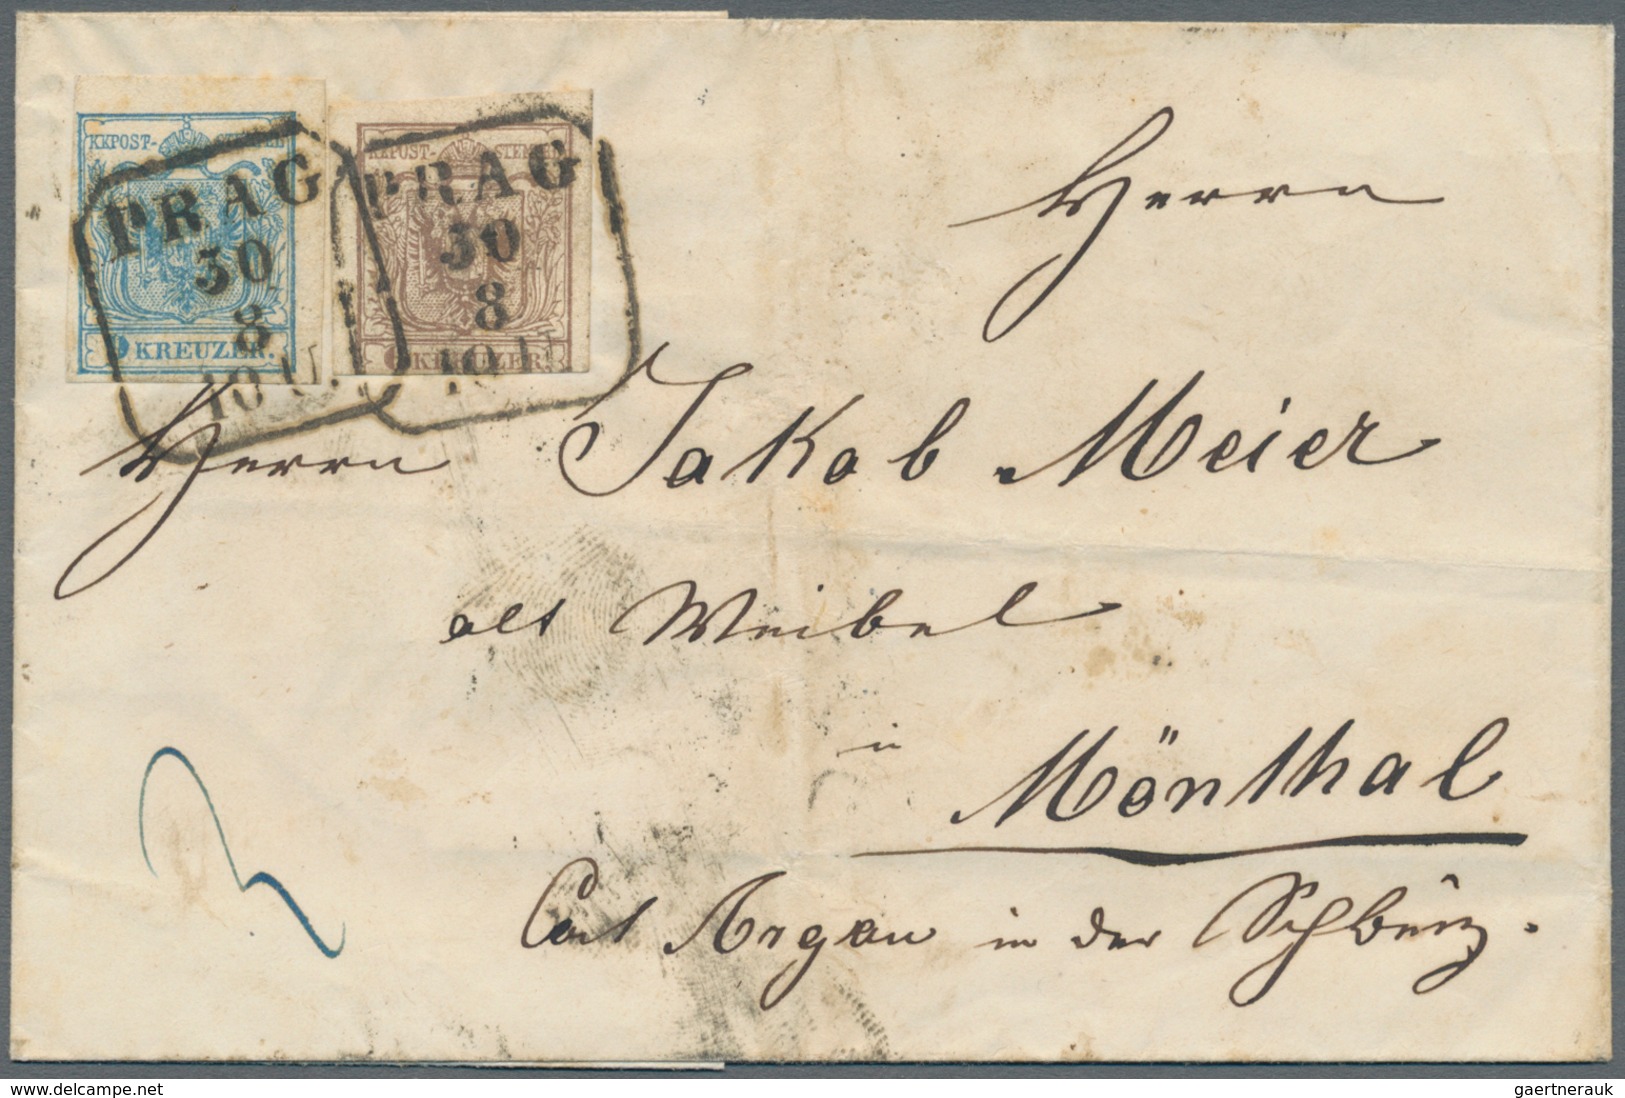 KKPOST-STEMPEL
9 KREUZER.
KKPOST-STEMPEL
6 KREUZER.
PRAG
30
8
10 U.
PRAG
30
8
10 U.
Herrn
Herrn Jakob Meier
alt Weibel
in
Mönthal
Cant Argau in der Schweiz.
3
www.delcampe.net
gaertnerauk